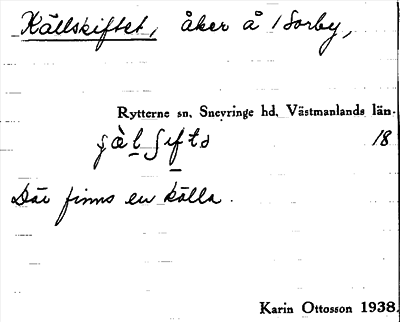 Källskiftet, åker å Sorby,
Rytterne sn. Snevringe hd. Västmanlands län.
18
Där finns en källa.
Karin Ottosson 1938.